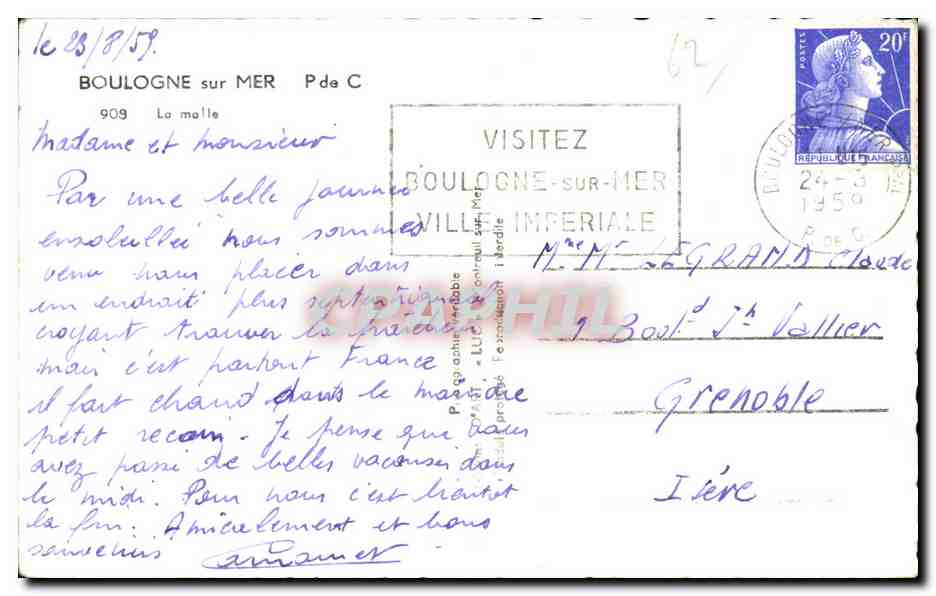 le 23/8/59.
BOULOGNE sur MER P de C
909 La malle
Madame et Monsieur
Par une belle journée
ensoleillée nous sommes
venu nous placer dans
un endroit plus septentrional
croyant trouver la fraîcheur
mais c'est partout France
il fait chaud dans le moindre
petit recoin. Je pense que vous
avez passé de belles vacances dans
le midi. Pour nous c'est bientôt
la fin. Amicalement et bons
souvenirs
62
VISITEZ
BOULOGNE-SUR-MER
VILLE IMPERIALE
POSTES
20F
REPUBLIQUE FRANÇAISE
BOULOGNE
24-8
1959
P. DE C.
Photographie véritable
"LUC" Montreuil sur Mer
Reproduction interdite
CPAPHIL
Mme Mr LEGRAND Claude
Boul d Jh Vallier
Grenoble
Isère